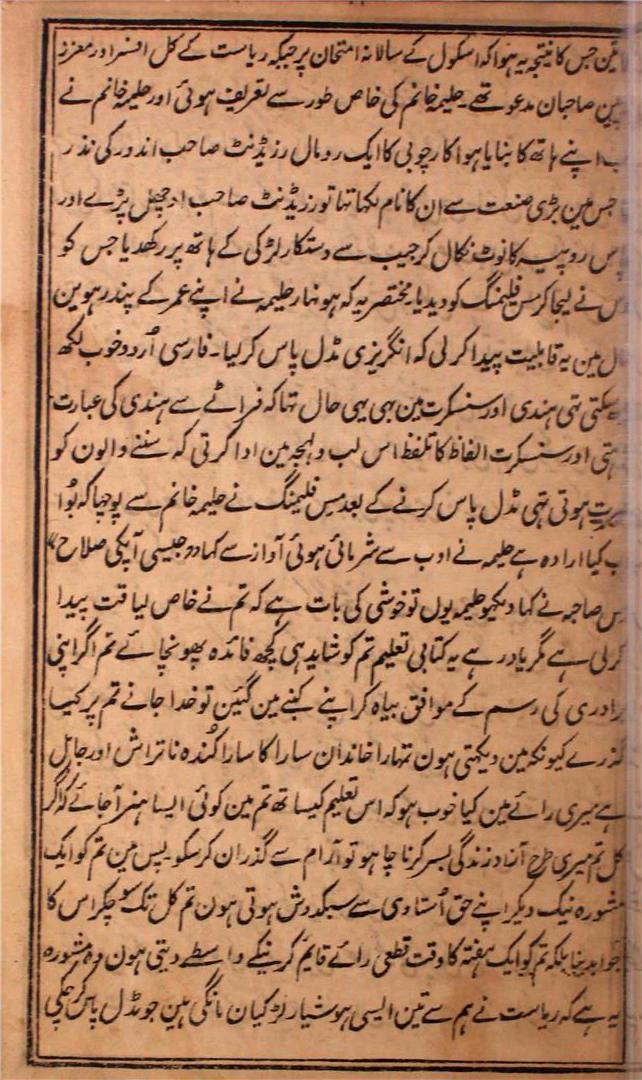 جس کا نتیجہ یہ ہوا کہ اسکول کے سالانہ امتحان پر جبکہ ریاست کے کل افسر اور معزز
صاحبان مدعو تھے۔ حلیمہ خانم کی خاص طور سے تعریف ہوئی اور حلیمہ خانم نے
اپنے ہاتھ کا بنایا ہوا کارچوبی کا ایک رومال رزیڈنٹ صاحب اندور کی نذر
جس مین بڑی صنعت سے ان کا نام لکھا تہا تو رزیڈنٹ صاحب اوچھل پڑے اور
روپیہ کا نوٹ نکال کر جیب سے دستکار لڑکی کے ہاتھ پر رکھدیا جس کو
نے لیجا کر مس فلیمنگ کو دیدیا۔ مختصر یہ کہ ہونہار حلیمہ نے اپنے عمر کے پندرہوین
مین یہ قابلیت پیدا کر لی کہ انگریزی مڈل پاس کر لیا۔ فارسی اُردو خوب لکھ
سکتی تہی ہندی اور سنسکرت مین بہی یہی حال تہا کہ فراٹے سے ہندی کی عبارت
اور سنسکرت الفاظ کا تلفظ اس لب ولہجہ مین ادا کرتی کہ سننے والون کو
ہوتی تہی مڈل پاس کرنے کے بعد مس فلیمنگ نے حلیمہ خانم سے پوچہا کہ بُوا
کیا ارادہ ہے حلیمہ نے ادب سے شرمائی ہوئی آواز سے کہا ’’جیسی آپکی صلاح‘‘
صاحبہ نے کہا دیکہو حلیمہ یوں تو خوشی کی بات ہے کہ تم نے خاص لیاقت پیدا
کر لی ہے مگر یاد رہے یہ کتابی تعلیم تم کو شاید ہی کچھ فائدہ پہونچائے تم اگر اپنی
برادری کی رسم کے موافق بیاہ کر اپنے کنبے مین گئین تو خدا جانے تم پر کیسا
گذرے کیونکہ مین دیکہتی ہون تمہارا خاندان سارا کا سارا کُندہ ناتراش اور جاہل
ہے میری رائے مین کیا خوب ہو کہ اس تعلیم کیساتھ تم مین کوئی ایسا ہنر آجائے کہ اگر
کل تم میری طرح آزاد زندگی بسر کرنا چاہو تو آرام سے گذران کر سکو۔ پس مین تم کو ایک
مشورہ نیک دیکر اپنے حق اُستادی سے سبکدوش ہوتی ہون تم کل تک سوچکر اس کا
جواب دینا بلکہ تم کو ایک ہفتہ کا وقت قطعی رائے قائم کرنیکے واسطے دیتی ہون وہ مشورہ
یہ ہے کہ ریاست نے ہم سے تین ایسی ہوشیار لڑکیان مانگی ہین جو مڈل پاس کر چکی